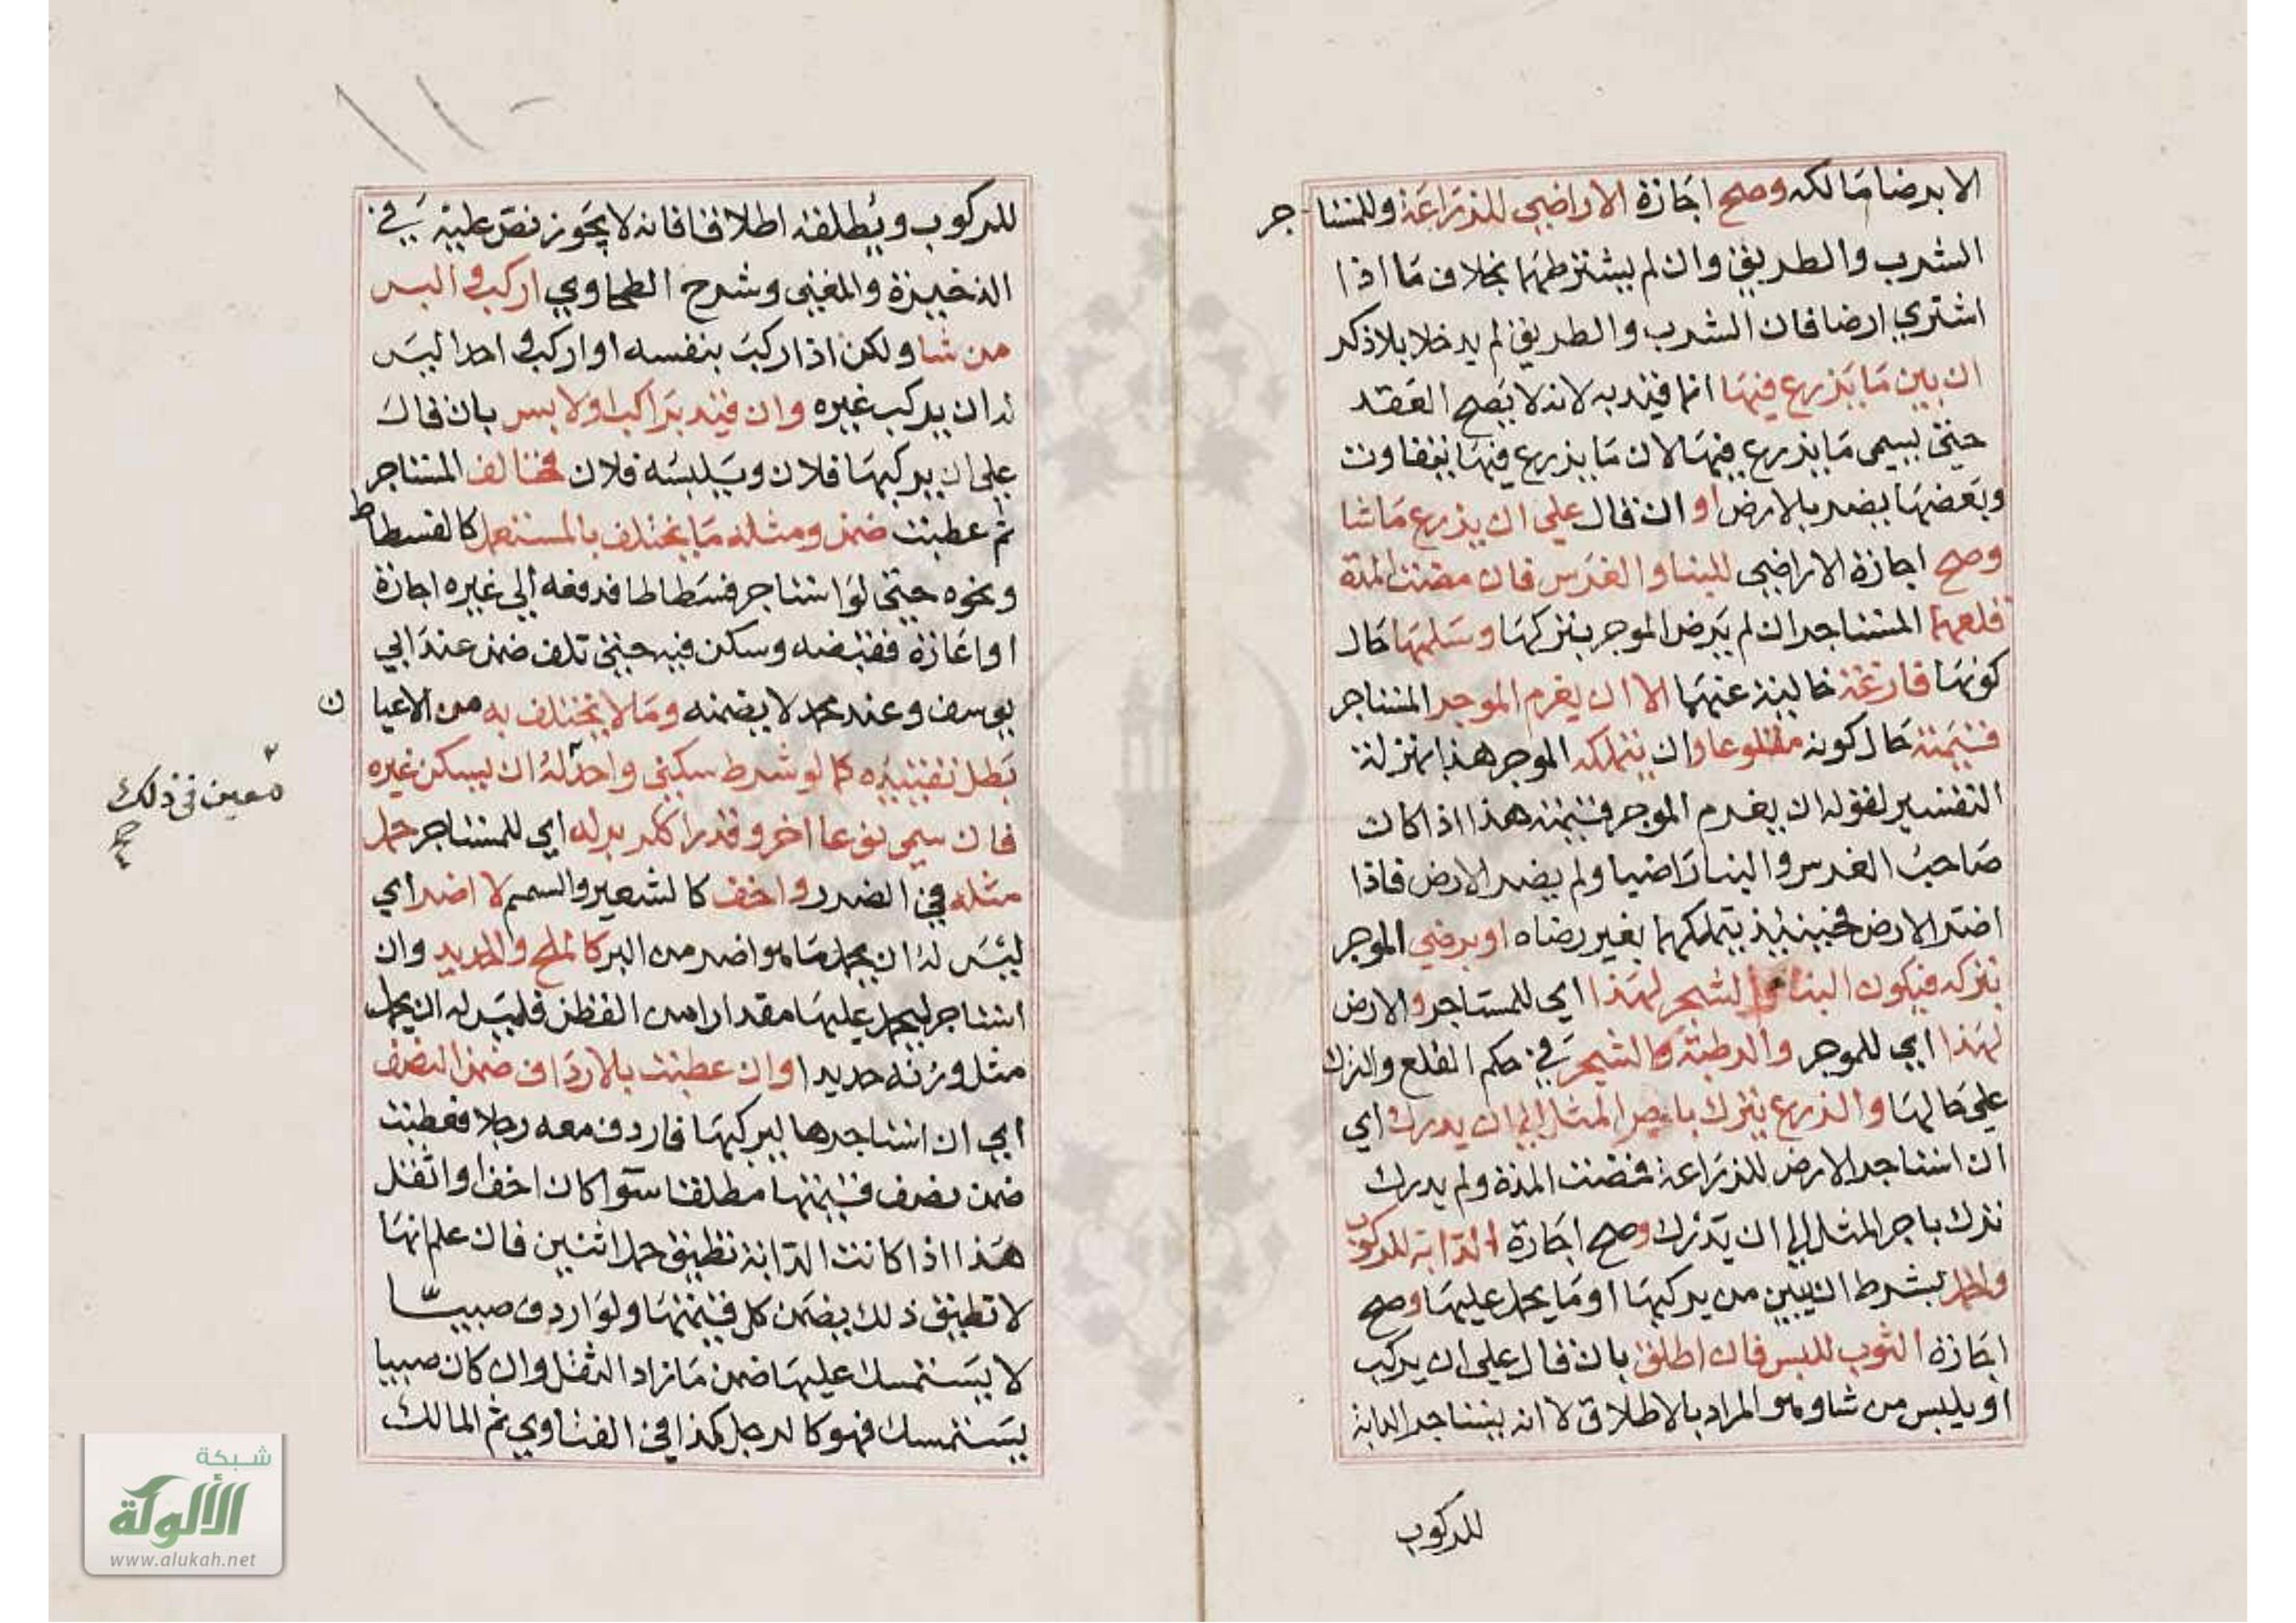 الا برضا مالكه وصح اجازة الاراضي للزراعة وللمستاجر
الشرب والطريق وان لم يشترطهما بخلاف ما اذا
اشتري ارضا فان الشرب والطريق لم يدخلا بلا ذكر
ان بين ما يزرع فيها انما قيد به لانه لا يصح العقد
حتي يسمي ما يزرع فيها لان ما يزرع فيها يتفاوت
وبعضها يضر بالارض او ان قال علي ان يزرع ما شا
وصح اجازة الاراضي للبنا والغرس فان مضت المدة
قلعهما المستاجر ان لم يرض الموجر بتركها وسلمها حال
كونها فارغة خالية عنهما الا ان يغرم الموجر المستاجر
قيمته حال كونه مقلوعا وان يتملكه الموجر هذا بمنزلة
التفسير لقوله ان يغرم الموجر قيمته هذا اذا كان
صاحب الغرس والبنا راضيا ولم يضر الارض فاذا
اضر الارض فحينيذ يتملكهما بغير رضاه او يرضي الموجر
بتركه فيكون البنا والشجر لهذا اي للمستاجر والارض
لهذا اي للموجر والرطبة كالشجر في حكم القلع والترك
علي حالها والزرع يترك باجر المثل الي ان يدرك اي
ان استاجر الارض للزراعة فمضت المدة ولم يدرك
ترك باجر المثل الي ان يدرك وصح اجازة الدابة للركوب
والحمل بشرط ان يبين من يركبها او ما يحمل عليها وصح
اجازة الثوب للبس فان اطلق بان قال علي ان يركب
او يلبس من شا وهو المراد بالاطلاق لا انه يستاجر الدابة
للركوب
للركوب ويطلقه اطلاقا فانه لا يجوز نص عليه في
الذخيرة والمغني وشرح الطحاوي اركب والبس
من شا ولكن اذا ركب بنفسه او اركب احدا ليس
له ان يركب غيره وان قيد براكب او لابس بان قال
علي ان يركبها فلان ويلبسه فلان فخالف المستاجر
ثم عطبت ضمن ومثله ما يختلف بالمستعمل كالفسطاط
ونحوه حتي لو استاجر فسطاطا فدفعه الي غيره اجازة
او اعارة فقبضه وسكن فيه حتي تلف ضمن عند ابي
يوسف وعند محمد لا يضمنه وما لا يختلف به من الاعيان
بطل تقييده كما لو شرط سكني واحد له ان يسكن غيره
معين في ذلك
صح
فان سمي نوعا اخر وقدرا ككر بر له اي للمستاجر حمل
مثله في الضرر واخف كالشعير والسمسم لا اضر اي
ليس له ان يحمل ما هو اضر من البر كالملح والحديد وان
استاجر ليحمل عليها مقدارا من القطن فليس له ان يحمل
مثل وزنه حديدا وان عطبت بالارداف ضمن النصف
اي ان استاجرها ليركبها فاردف معه رجلا فعطبت
ضمن نصف قيمتها مطلقا سوا كان اخف او اثقل
هذا اذا كانت الدابة تطيق حمل اثنين فان علم انها
لا تطيق ذلك يضمن كل قيمتها ولو اردف صبيا
لا يستمسك عليها ضمن ما زاد الثقل وان كان صبيا
يستمسك فهو كالرجل كذا في الفتاوي ثم المالك
شبكة
الألوكة
www.alukah.net